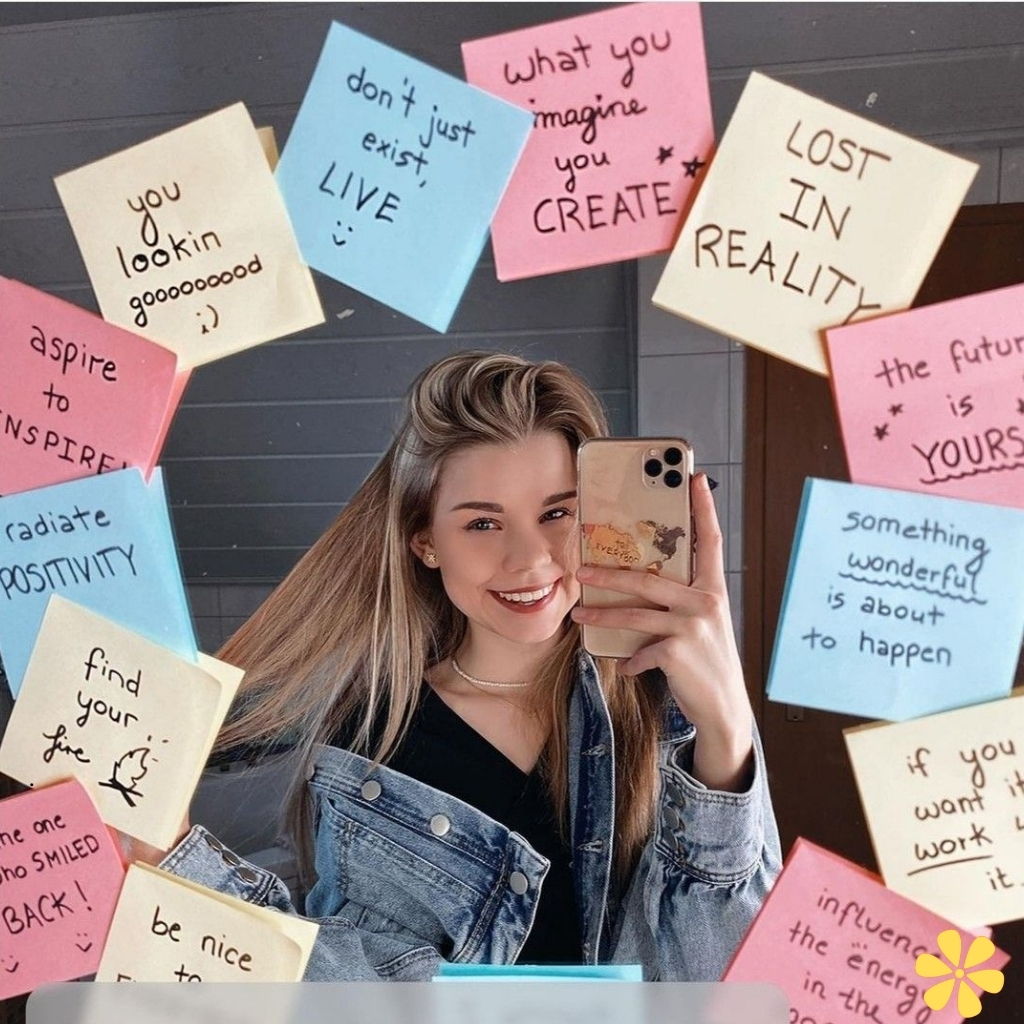 you
lookin
gooooooood
;)
don't just
exist,
LIVE
what you
imagine
you
CREATE
LOST
IN
REALITY
aspire
to
INSPIRE!
the futur
is
YOURS
radiate
POSITIVITY
something
wonderful
is about
to happen
find
your
fire
if you
want it
work
it.
the one
who SMILED
BACK!
be nice
to
influence
the energy
in the